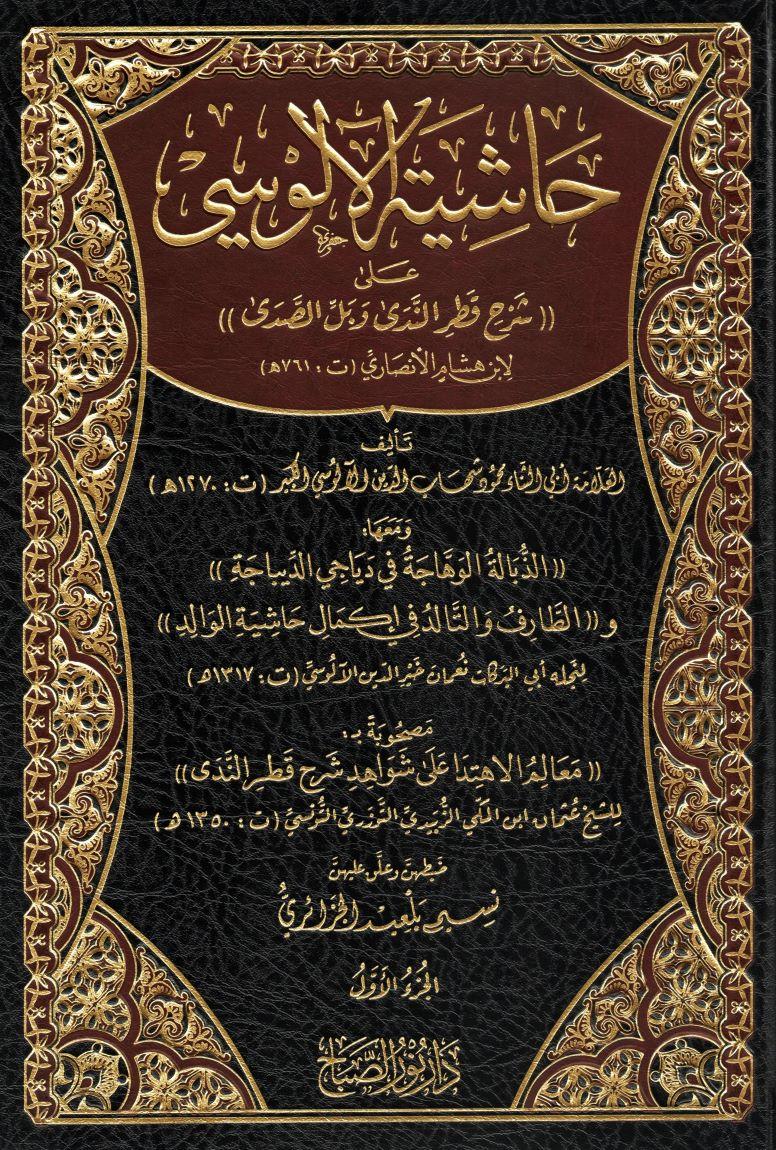 حَاشِيَةُ الآلُوْسِيِّ
عَلَىٰ
((شَرْحِ قَطْرِ النَّدَىٰ وَبَلِّ الصَّدَىٰ))
لِابْنِ هِشَامٍ الأَنْصَارِيِّ (ت: ٧٦١هـ)
تَأليف
العَلَّامَة أَبِي الثَّنَاء مَحمُود شِهَاب الدِّين الآلُوسِي الكَبِير (ت: ١٢٧٠هـ)
وَمَعَهَا:
((الذُّبَالَةُ الوَهَّاجَةُ فِي دَيَاجِي الدِّيبَاجَةِ))
و((الطَّارِفُ وَالتَّالِدُ فِي إِكمَالِ حَاشِيَةِ الوَالِدِ))
لِنَجلِهِ أَبِي البَرَكَات نُعْمَان خَيْر الدِّين الآلُوسِيِّ (ت: ١٣١٧هـ)
مَصحُوبَةً بـ:
((مَعَالِمُ الاهْتِدَا عَلَىٰ شَوَاهِدِ شَرْحِ قَطْرِ النَّدَى))
لِلشَّيخ عُثْمَان ابن المَكِّي الزُّبَيْدِيِّ التَّوْزَرِيِّ التُّونُسِيِّ (ت: ١٣٥٠هـ)
ضَبَطَهُنَّ وَعَلَّقَ عَلَيهِنَّ
نَسِيم بَلْعِيد الجَزَائِرِيُّ
الجُزْءُ الأَوَّلُ
دَارُ نُوْرِ الصَّبَاحِ